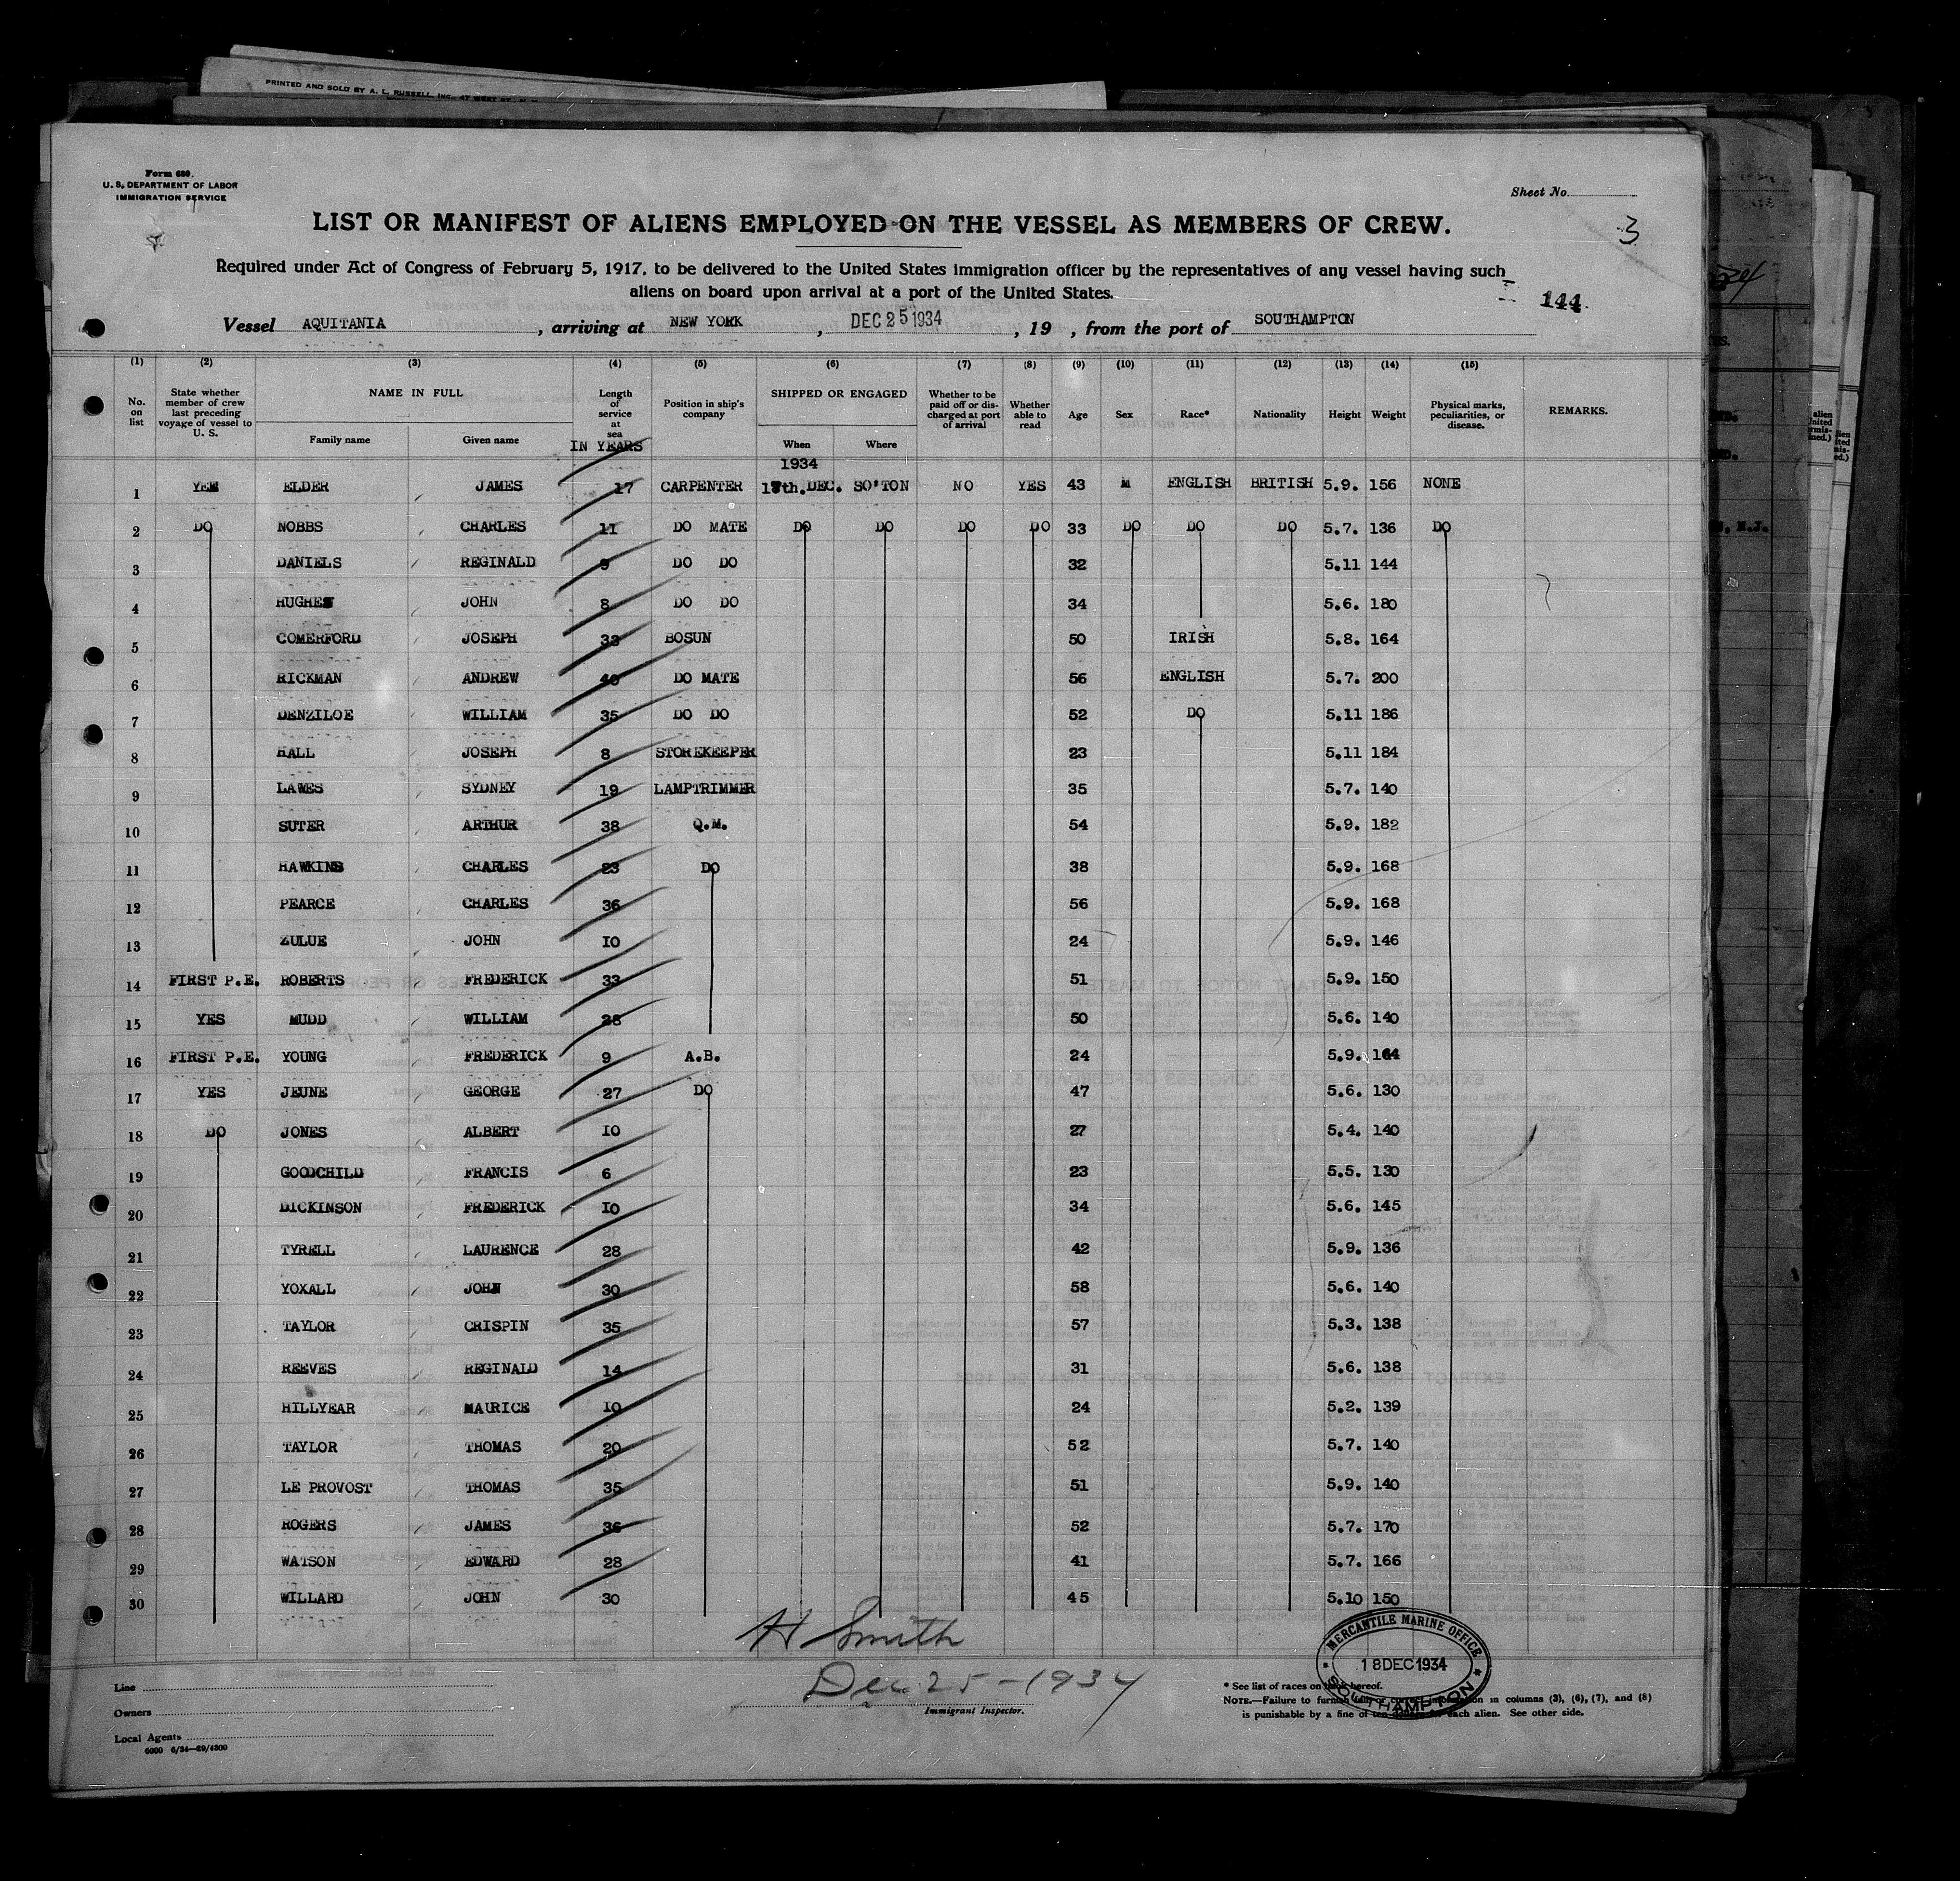 PRINTED AND SOLD BY A. L. RUSSELL, INC.,
Form 680.
U. S. DEPARTMENT OF LABOR
IMMIGRATION SERVICE
Sheet No.
3
LIST OR MANIFEST OF ALIENS EMPLOYED ON THE VESSEL AS MEMBERS OF CREW.
Required under Act of Congress of February 5, 1917, to be delivered to the United States immigration officer by the representatives of any vessel having such
aliens on board upon arrival at a port of the United States.
144
Vessel AQUITANIA , arriving at NEW YORK , DEC 25 1934 , 19 , from the port of SOUTHAMPTON
(1) (2) (3) (4) (5) (6) (7) (8) (9) (10) (11) (12) (13) (14) (15)
No. on list State whether member of crew last preceding voyage of vessel to U. S. NAME IN FULL Length of service at sea IN YEARS Position in ship's company SHIPPED OR ENGAGED Whether to be paid off or discharged at port of arrival Whether able to read Age Sex Race* Nationality Height Weight Physical marks, peculiarities, or disease. REMARKS.
Family name Given name When Where
1934
1 YES ELDER JAMES 17 CARPENTER 18th. DEC. SO'TON NO YES 43 M ENGLISH BRITISH 5.9. 156 NONE
2 DO NOBBS CHARLES 11 DO MATE DO DO DO DO 33 DO DO DO 5.7. 136 DO
3 DANIELS REGINALD 9 DO DO 32 5.11 144
4 HUGHES JOHN 8 DO DO 34 5.6. 180
5 COMERFORD JOSEPH 33 BOSUN 50 IRISH 5.8. 164
6 RICKMAN ANDREW 40 DO MATE 56 ENGLISH 5.7. 200
7 DENZILOE WILLIAM 35 DO DO 52 DO 5.11 186
8 HALL JOSEPH 8 STOREKEEPER 23 5.11 184
9 LAWES SYDNEY 19 LAMPTRIMMER 35 5.7. 140
10 SUTER ARTHUR 38 Q.M. 54 5.9. 182
11 HAWKINS CHARLES 23 DO 38 5.9. 168
12 PEARCE CHARLES 36 56 5.9. 168
13 ZULUE JOHN 10 24 5.9. 146
14 FIRST P.E. ROBERTS FREDERICK 33 51 5.9. 150
15 YES MUDD WILLIAM 28 50 5.6. 140
16 FIRST P.E. YOUNG FREDERICK 9 A.B. 24 5.9. 164
17 YES JEUNE GEORGE 27 DO 47 5.6. 130
18 DO JONES ALBERT 10 27 5.4. 140
19 GOODCHILD FRANCIS 6 23 5.5. 130
20 DICKINSON FREDERICK 10 34 5.6. 145
21 TYRELL LAURENCE 28 42 5.9. 136
22 YOXALL JOHN 30 58 5.6. 140
23 TAYLOR CRISPIN 35 57 5.3. 138
24 REEVES REGINALD 14 31 5.6. 138
25 HILLYEAR MAURICE 10 24 5.2. 139
26 TAYLOR THOMAS 20 52 5.7. 140
27 LE PROVOST THOMAS 35 51 5.9. 140
28 ROGERS JAMES 36 52 5.7. 170
29 WATSON EDWARD 28 41 5.7. 166
30 WILLARD JOHN 30 45 5.10 150
H Smith
Dec 25 - 1934
Immigrant Inspector.
MERCANTILE MARINE OFFICE
18 DEC 1934
SOUTHAMPTON
Line
Owners
Local Agents
6000 6/34—29/4300
* See list of races on back hereof.
NOTE.—Failure to furnish full or correct information in columns (3), (6), (7), and (8)
is punishable by a fine of ten dollars for each alien. See other side.